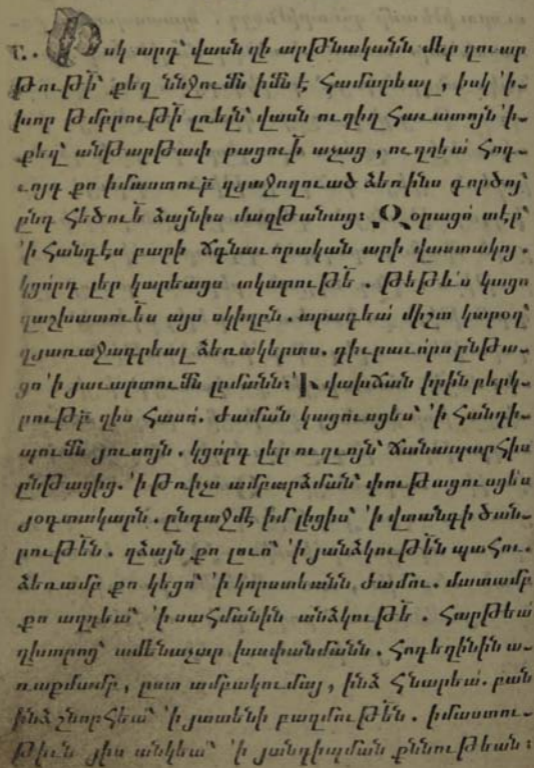 Իսկ արդ՝ վասն զի արթնականն մեր զուար
թութի՝ քեզ ննջումն իմն է համարեալ, իսկ ՚ի
խոր թմբրութի լռելն՝ վասն ուղիղ հաւատոյն ՚ի
քեզ՝ անթարթափ բացուի աչաց, ուղղեա հոգ
ւոյդ քո իմաստուբ զյաջողուած ձեռինս գործոյ՝
ընդ հեծուե ձայնիս մաղթանաց: Զօրացո տէր՝
՚ի հանդէս բարի ճգնաւորական արի վաստակոյ.
կցորդ լեր կարեացս տկարութե. թեթևս կացո
զաշխատուես այս սկիզբն. արագեա միշտ կարօղ՝
զյառաջագրեալ ձեռակերտս. դիւրաւորս ընթա
ցո ՚ի յաւարտումն լրմանն: Ի վախճան իրին բերկ
րութբ զիս հասո. ժաման կացուսցես՝ ՚ի հանդի
պումն յուսոյն. կցորդ լեր ուղւոյն՝ ճանապարհիս
ընթացից. ՚ի թռիչս ամբարձման՝ փութացուսցես
յօգտակարն. ընդ աջմէ իմ լիցիս՝ ՚ի վտանգի ծան
րութեն. զձայն քո լուո՝ ՚ի յանձկութեն պահու.
ձեռամբ քո կեցո՝ ՚ի կորստեանն ժամու. մատամբ
քո ազդեա՝ ՚ի սահմանին անձկութե. հարթեա
զխտրոց՝ ամենաչար խափանմանն. հոգեղինին ա
ռաքմամբ, ըստ ամբակումայ, ինձ հնարեա. բան
ինձ շնորհեա՝ ՚ի յատենի բազմութեն. իմաստու
թիւն յիս անկեա՝ ՚ի յանդիպման քննութեան: